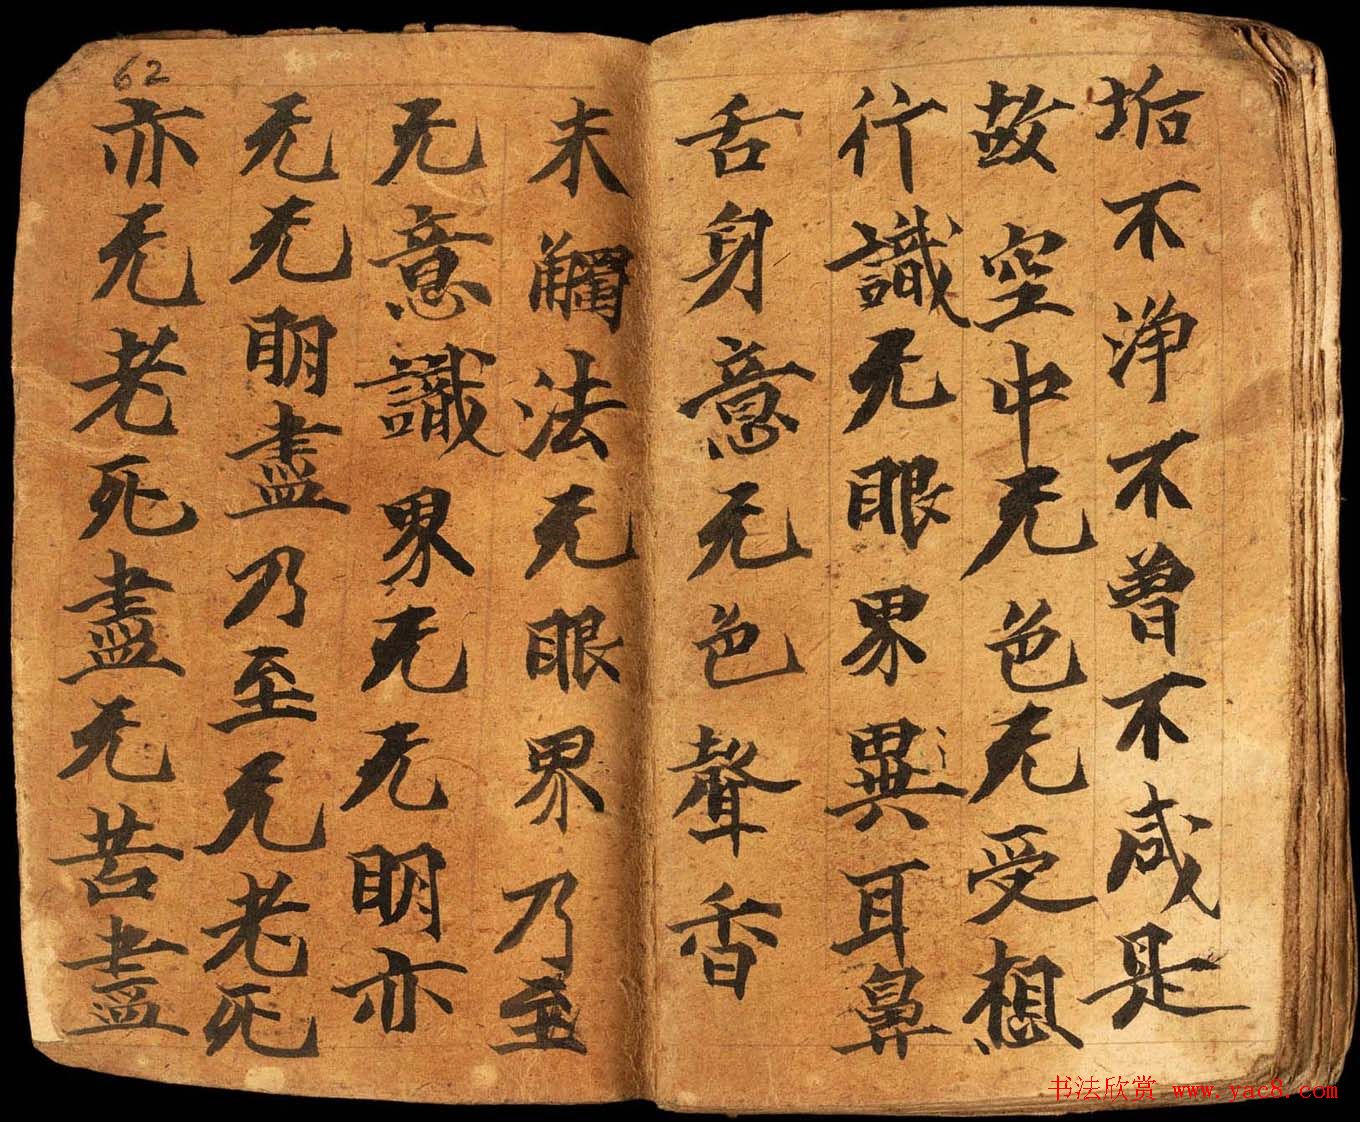 垢不浄不曾不咸是
故空中无色无受想
行識无眼界異耳鼻
舌身意无色聲香
未觸法无眼界乃至
无意識界无无明亦
无无明盡乃至无老死
亦无老死盡无苦盡
62
书法欣赏 www.yac8.com